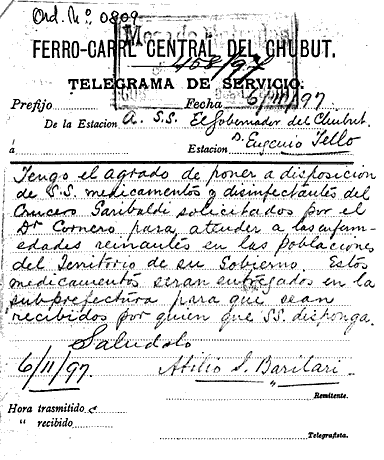 Ord. Nº 0809
FERRO-CARRIL CENTRAL DEL CHUBUT.
458/97
TELEGRAMA DE SERVICIO.
Prefijo Fecha 6/11/97
De la Estacion A. S.S. El Gobernador del Chubut.
á Estacion D. Eugenio Tello
Tengo el agrado de poner a disposicion
de S.S. medicamentos y disinfectantes del
Crucero Garibaldi solicitados por el
Dr Cornero para atender a las enfum-
edades reinantes en las poblaciones
del Territorio de su Gobierno. Estos
medicamentos seran entregados en la
subprefectura para que sean
recibidos por quien que SS. disponga.
Saludolo
6/11/97. Atilio S. Barilari
Remitente.
Hora trasmitido
" recibido
Telegrafista.